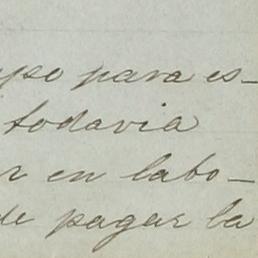 mpo para es-
todavia
r en labo-
de pagar la